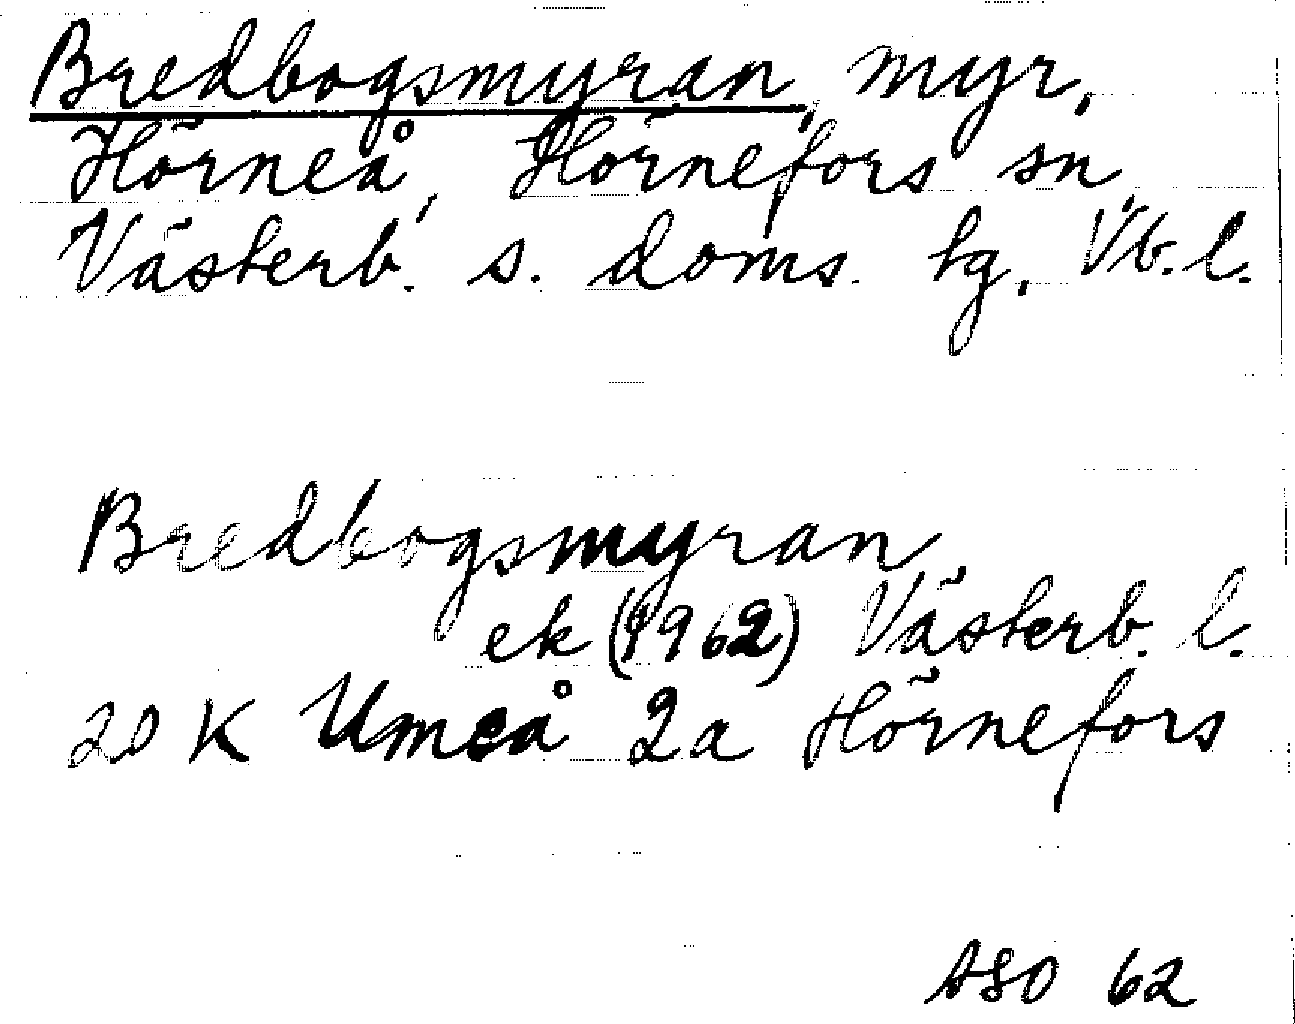 Bredbogsmyran, myr,
Hörneå, Hörnefors sn,
Västerb. s. doms. tg, Vb. l.
Bredbogsmyran
ek (1962) Västerb. l.
20 K Umeå 2a Hörnefors
ASO 62